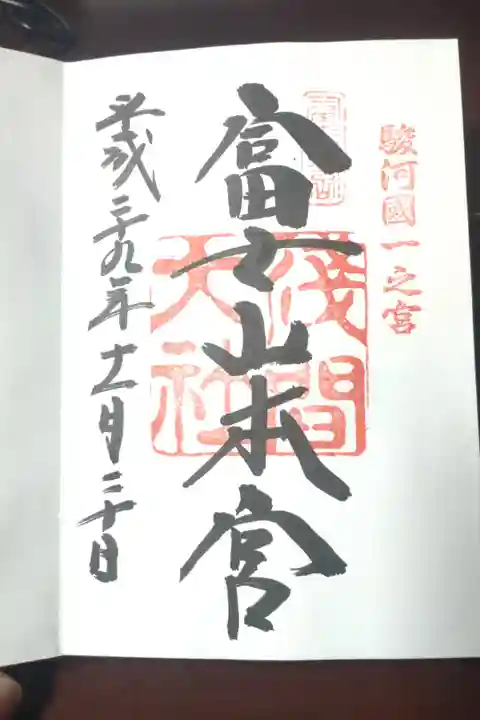 駿河國一之宮
富士山本宮
淺間
大社
平成二十九年十一月二十日